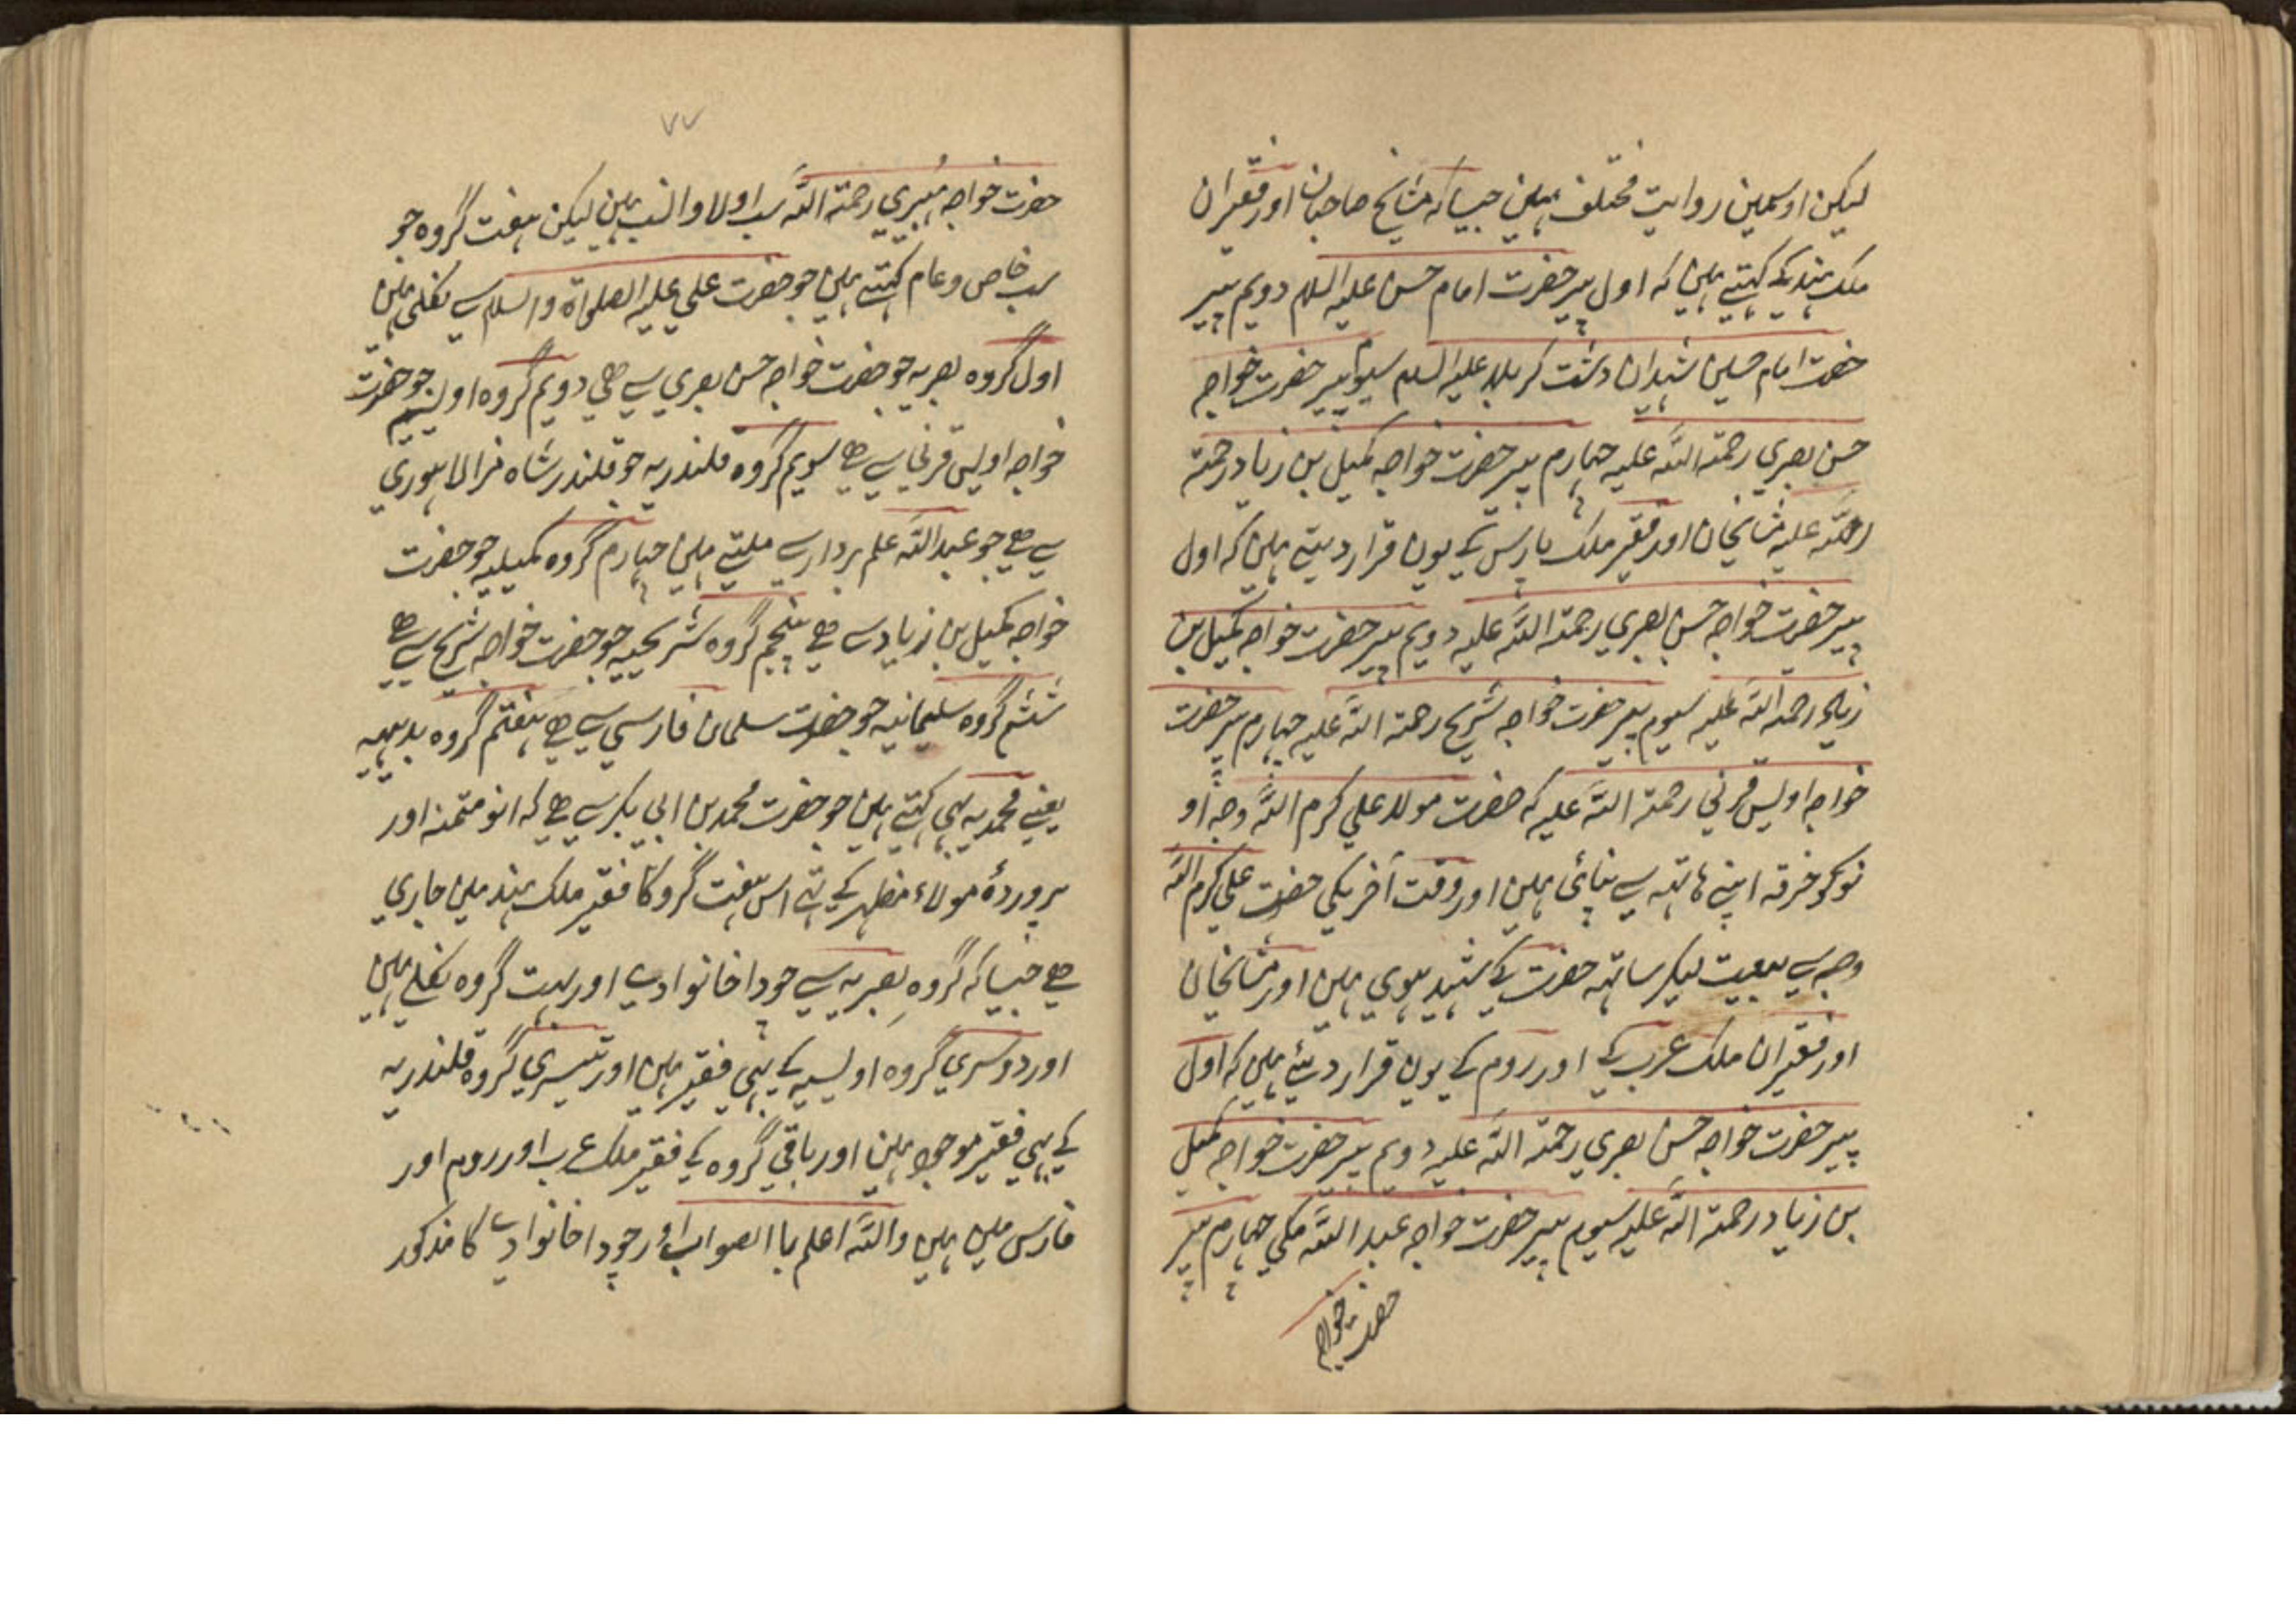 لیکن اوسمین روایت مختلف ہین جیسا که مشایخ صاحبان اور فقیران
ملک ہند کے کہتے ہین که اول پیر حضرت امام حسن علیہ السلام دویم پیر
حضرت امام حسین شہیدان دشت کربلا علیہ السلام سیوم پیر حضرت خواجہ
حسن بصری رحمۃ اللّٰہ علیہ چہارم پیر حضرت خواجہ کمیل بن زیاد رحمۃ
اللّٰہ علیہ مشایخان اور فقیر ملک پارس کے یون قرار دیتے ہین که اول
پیر حضرت خواجہ حسن بصری رحمۃ اللّٰہ علیہ دویم پیر حضرت خواجہ کمیل بن
زیاد رحمۃ اللّٰہ علیہ سیوم پیر حضرت خواجہ شریح رحمۃ اللّٰہ علیہ چہارم پیر حضرت
خواجہ اویس قرنی رحمۃ اللّٰہ علیہ که حضرت مولا علی کرم اللّٰہ وجہ او
نوکو خرقہ اپنے ہاتہہ سے پنہائی ہین اور وقت آخر یکی حضرت علی کرم اللّٰہ
وجہ سے بیعت لیکر ساتہہ حضرت کے شہید ہوی ہین اور مشایخان
اور فقیران ملک عرب کے اور روم کے یون قرار دیتے ہین که اول
پیر حضرت خواجہ حسن بصری رحمۃ اللّٰہ علیہ دویم پیر حضرت خواجہ کمیل
بن زیاد رحمۃ اللّٰہ علیہ سیوم پیر حضرت خواجہ عبد اللّٰہ مکی چہارم پیر
حضرت خواجہ
٧٧
حضرت خواجہ رحمۃ اللّٰہ سب اولاد النب ہین لیکن ہفت گروہ جو
سب خاص و عام کہتے ہین جو حضرت علی علیہ الصلواۃ والسلام سے نکلی ہین
اول گروہ بصریہ جو حضرت خواجہ حسن بصری سے ہے دویم گروہ اویسیہ جو حضرت
خواجہ اویس قرنی سے ہے سویم گروہ قلندریہ جو قلندر شاہ لاہوری
سے ہے جو عبد اللّٰہ علم بردار سے ملتے ہین چہارم گروہ کمیلیہ جو حضرت
خواجہ کمیل بن زیاد سے ہے پنجم گروہ شریحیہ جو حضرت خواجہ شریح سے ہے
ششم گروہ سلیمانیہ جو حضرت سلمان فارسی سے ہے ہفتم گروہ
یعنے محمدیہ بہی کہتے ہین جو حضرت محمد بن ابی بکر سے ہے که اور
پروردۂ مولاء مظہر کے تہے اس ہفت گروکا فقیر ملک ہند مین جاری
ہے جیسا که گروہ بصریہ سے چودا خانوادے اور بہت گروہ نکلے ہین
اور دوسری گروہ اویسیہ کے بہی فقیر ہین اور تیسری گروہ قلندریہ
کے بہی فقیر موجود ہین اور باقی گروہ کے فقیر ملک عرب اور روم اور
فارس مین ہین واللّٰہ اعلم باالصواب اور چودا خانوادے کا مذکور